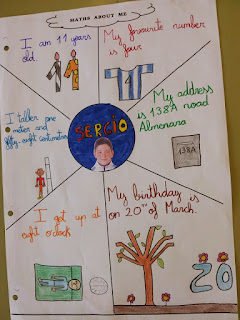 MATHS ABOUT ME
I am 11 years
old.
11
My favourite number
is fair
4
My address
is 138A road
Almenara
138A
SERGIO
I taller one
meter and
fifty-eight centimeters
My birthday is
on 20th of March.
20
I get up at
eight o'clock